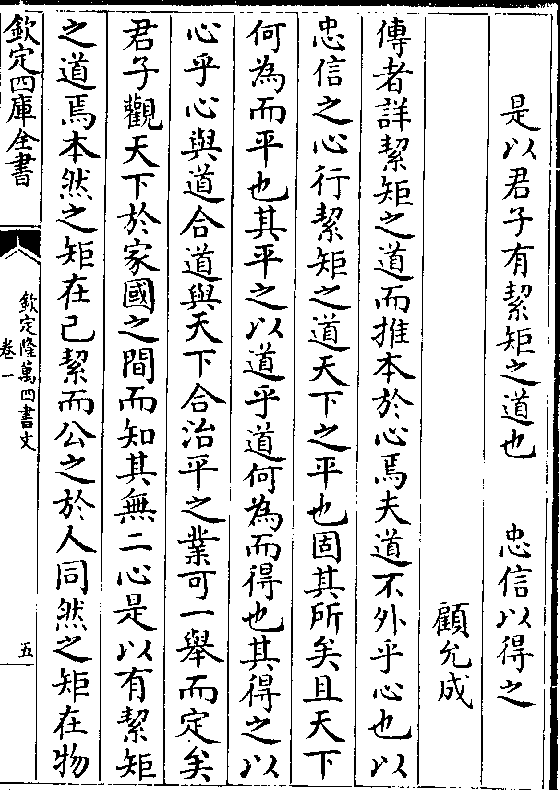 是以君子有絜矩之道也　忠信以得之
顧允成
傳者詳絜矩之道而推本於心焉夫道不外乎心也以
忠信之心行絜矩之道天下之平也固其所矣且天下
何為而平也其平之以道乎道何為而得也其得之以
心乎心與道合道與天下合治平之業可一舉而定矣
君子觀天下於家國之間而知其無二心是以有絜矩
之道焉本然之矩在己絜而公之於人同然之矩在物
欽定四庫全書
欽定隆萬四書文
卷一
五